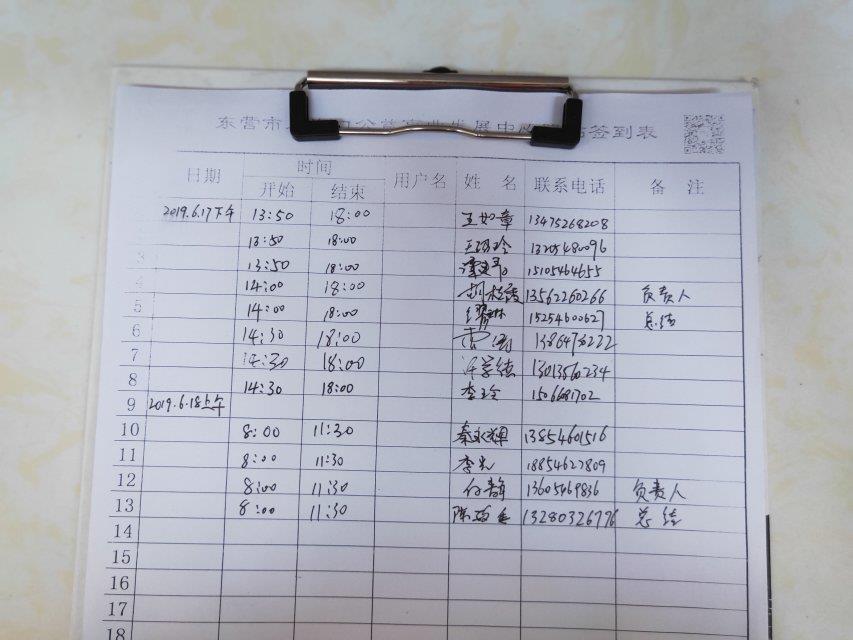 东营市 公益事业发展中心 签到表
日期 时间 用户名 姓 名 联系电话 备 注
开始 结束
2019.6.17下午 13:50 18:00 王如章 13475268208
13:50 18:00 13205480096
3 13:50 18:00 15105464655
4 14:00 18:00 13562260266 负责人
5 14:00 18:00 15254600627 总结
6 14:30 18:00
7 14:30 18:00 13013560234
8 14:30 18:00 李玲
9 2019.6.18上午
10 8:00 11:30 秦永辉 13854601516
11 8:00 11:30 李光 18854627809
12 8:00 11:30 付静 负责人
13 8:00 11:30 13280326776 总结
14
15
16
17
18